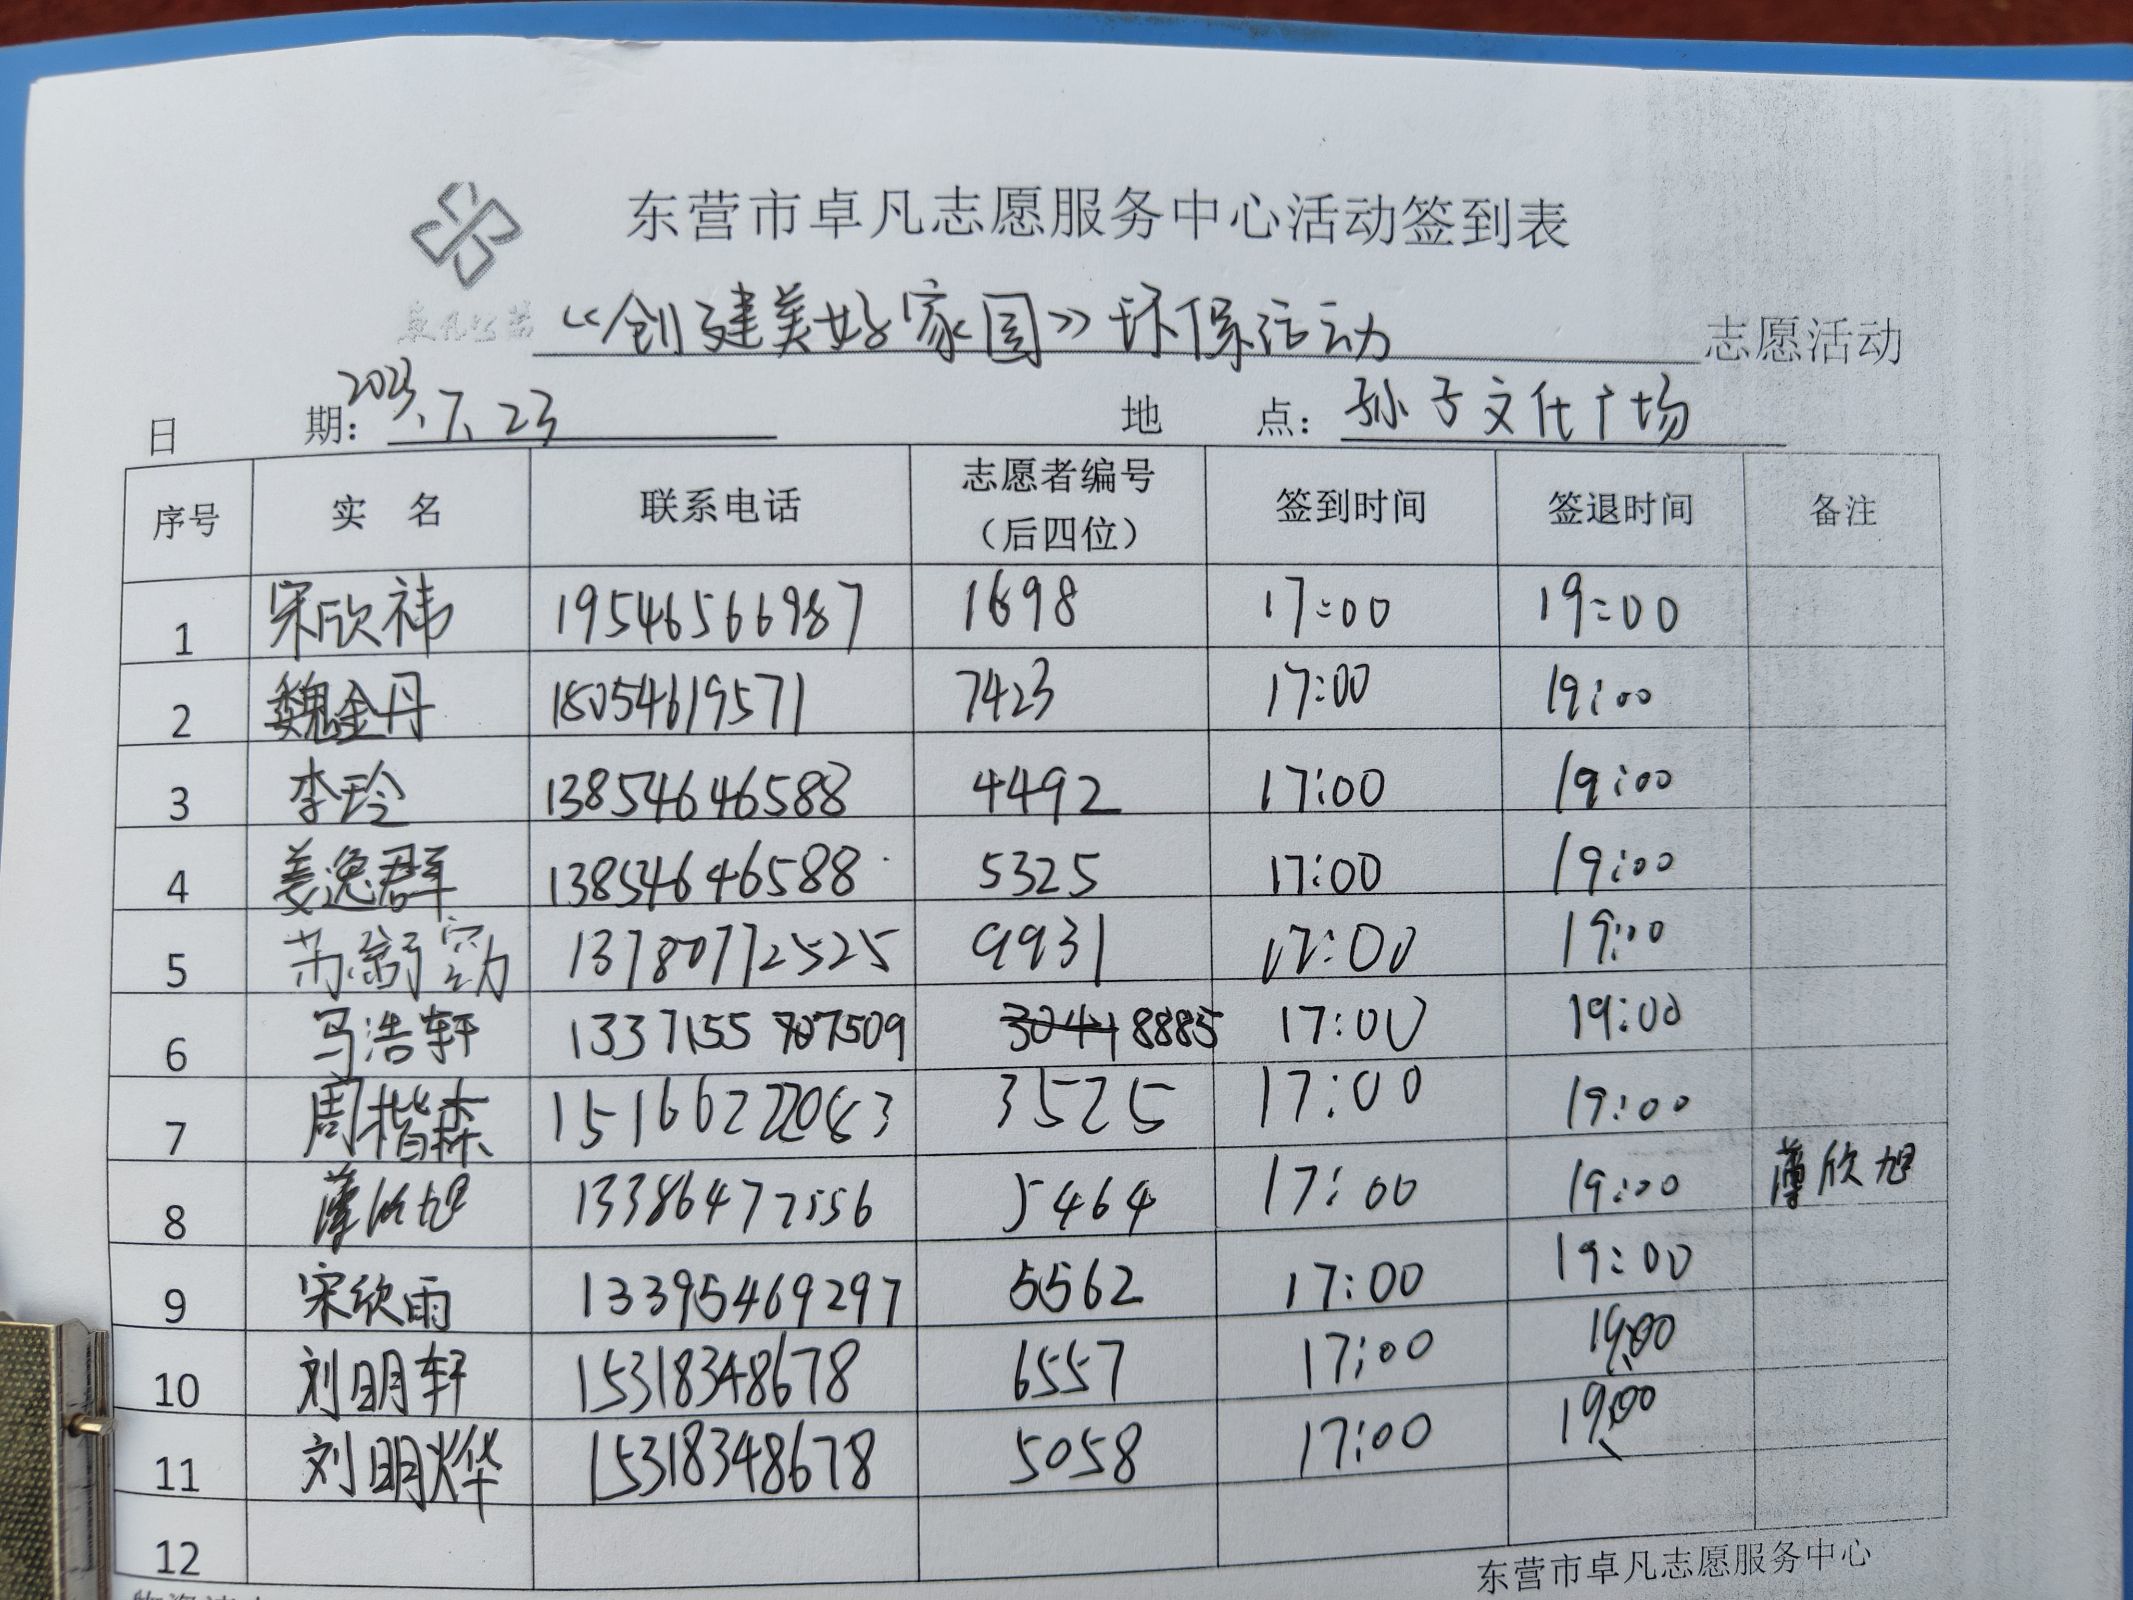 东营市卓凡志愿服务中心活动签到表
卓凡公益
《创建美好家园》环保活动 志愿活动
日 期: 2023.7.23 地 点: 孙子文化广场
序号 实 名 联系电话 志愿者编号（后四位） 签到时间 签退时间 备注
1 宋欣祎 19546566987 1698 17:00 19:00
2 魏金丹 18054619571 7423 17:00 19:00
3 李玲 13854646588 4492 17:00 19:00
4 姜逸群 13854646588 5325 17:00 19:00
5 13780772525 9931 17:00 19:00
6 马浩轩 8885 17:00 19:00
7 周楷森 3525 17:00 19:00
8 薄欣旭 13386477556 5464 17:00 19:00 薄欣旭
9 宋欣雨 13395469297 5562 17:00 19:00
10 刘明轩 15318348678 6557 17:00 19:00
11 刘明烨 15318348678 5058 17:00 19:00
12
东营市卓凡志愿服务中心